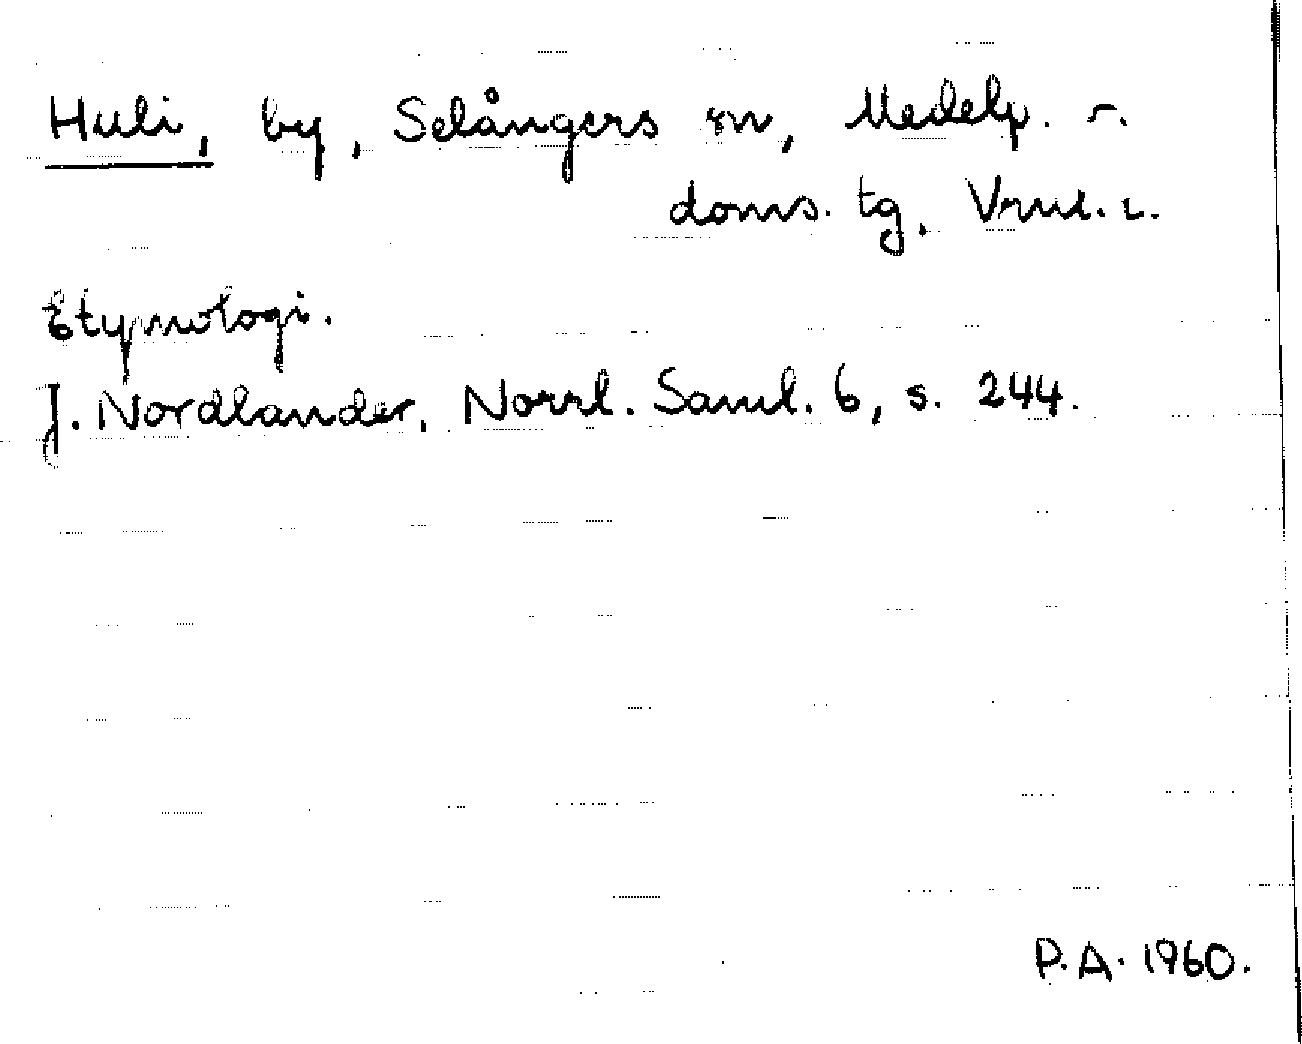 Huli, by, Selångers sn, Medelp.
doms. tg, Vnul. l.
Etymologi.
J. Nordlander, Norrl. Saml. 6, s. 244.
P.A. 1960.